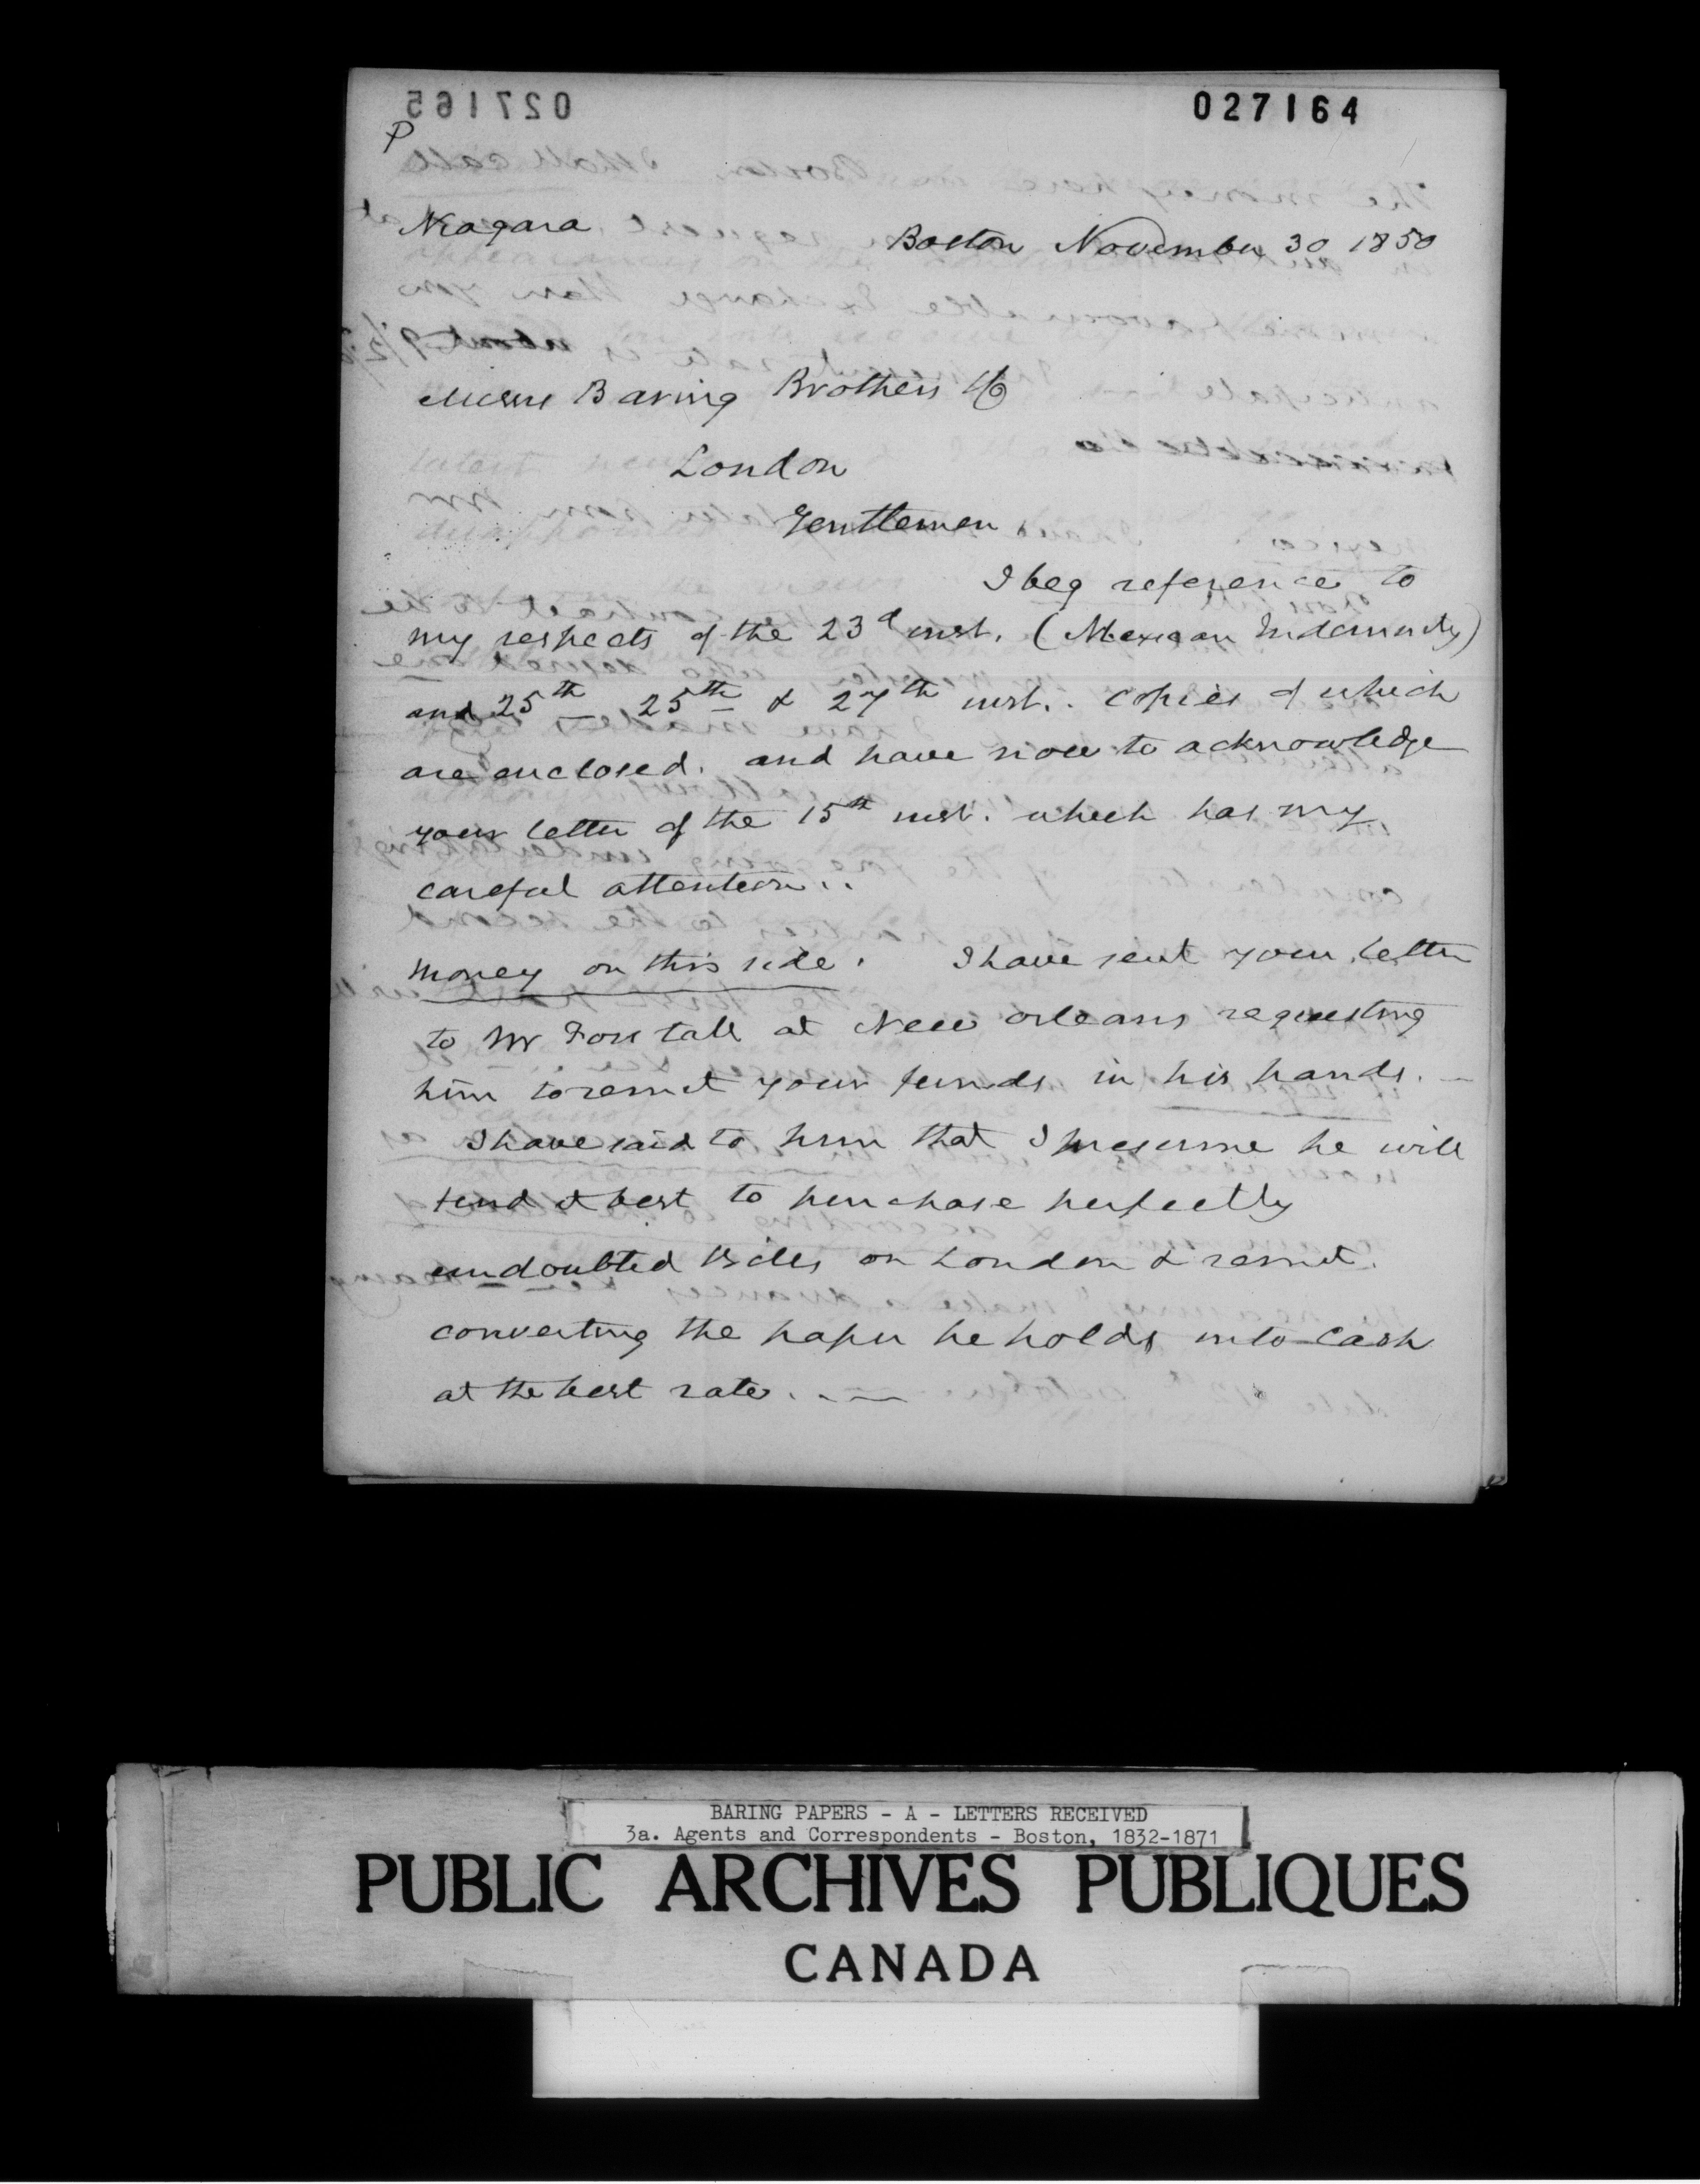 027165
027164
P
Niagara
Boston November 30 1850
Messrs Baring Brothers & Co
London
Gentlemen
I beg reference to
my respects of the 23d inst. (Mexican Indemnity)
and 25th 25th & 27th inst. copies of which
are enclosed. and have now to acknowledge
your letter of the 15th inst. which has my
careful attention..
Money on this side. I have sent your letter
to Mr Forstall at New Orleans requesting
him to remit your funds in his hands. —
I have said to him that I presume he will
find it best to purchase perfectly
undoubted Bills on London & remit.
converting the paper he holds into Cash
at the best rate. —
BARING PAPERS - A - LETTERS RECEIVED
3a. Agents and Correspondents - Boston, 1832-1871
PUBLIC ARCHIVES PUBLIQUES
CANADA